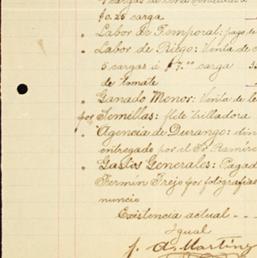 $0.25 carga
" Labor de Temporal: pago de
" Labor de Riego: Venta de
5 cargas á $7.00 carga
de tomate
" Ganado Menor: Venta de
por Semillas: flete trilladora
" Agencia de Durango: din
entregado por el Sr. Ramire
" Gastos Generales: Pagad
Fermin Trejo por fotografias
nuncio
Existencia actual - -
Igual
J. A. Martinez